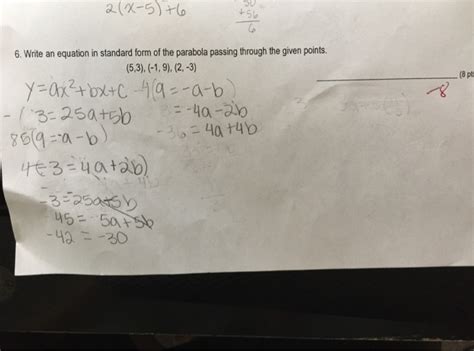 2(x-5)+6
+56
6
6. Write an equation in standard form of the parabola passing through the given points.
(5,3), (-1, 9), (2, -3)
(8 pts
-8
y=ax²+bx+c -4(9=-a-b)
3=25a+5b 3=-4a-2b
85(9=-a-b) -36=4a+4b
4(-3=4a+2b)
-3=25a+5b
45= 5a+5b
-42 = -30